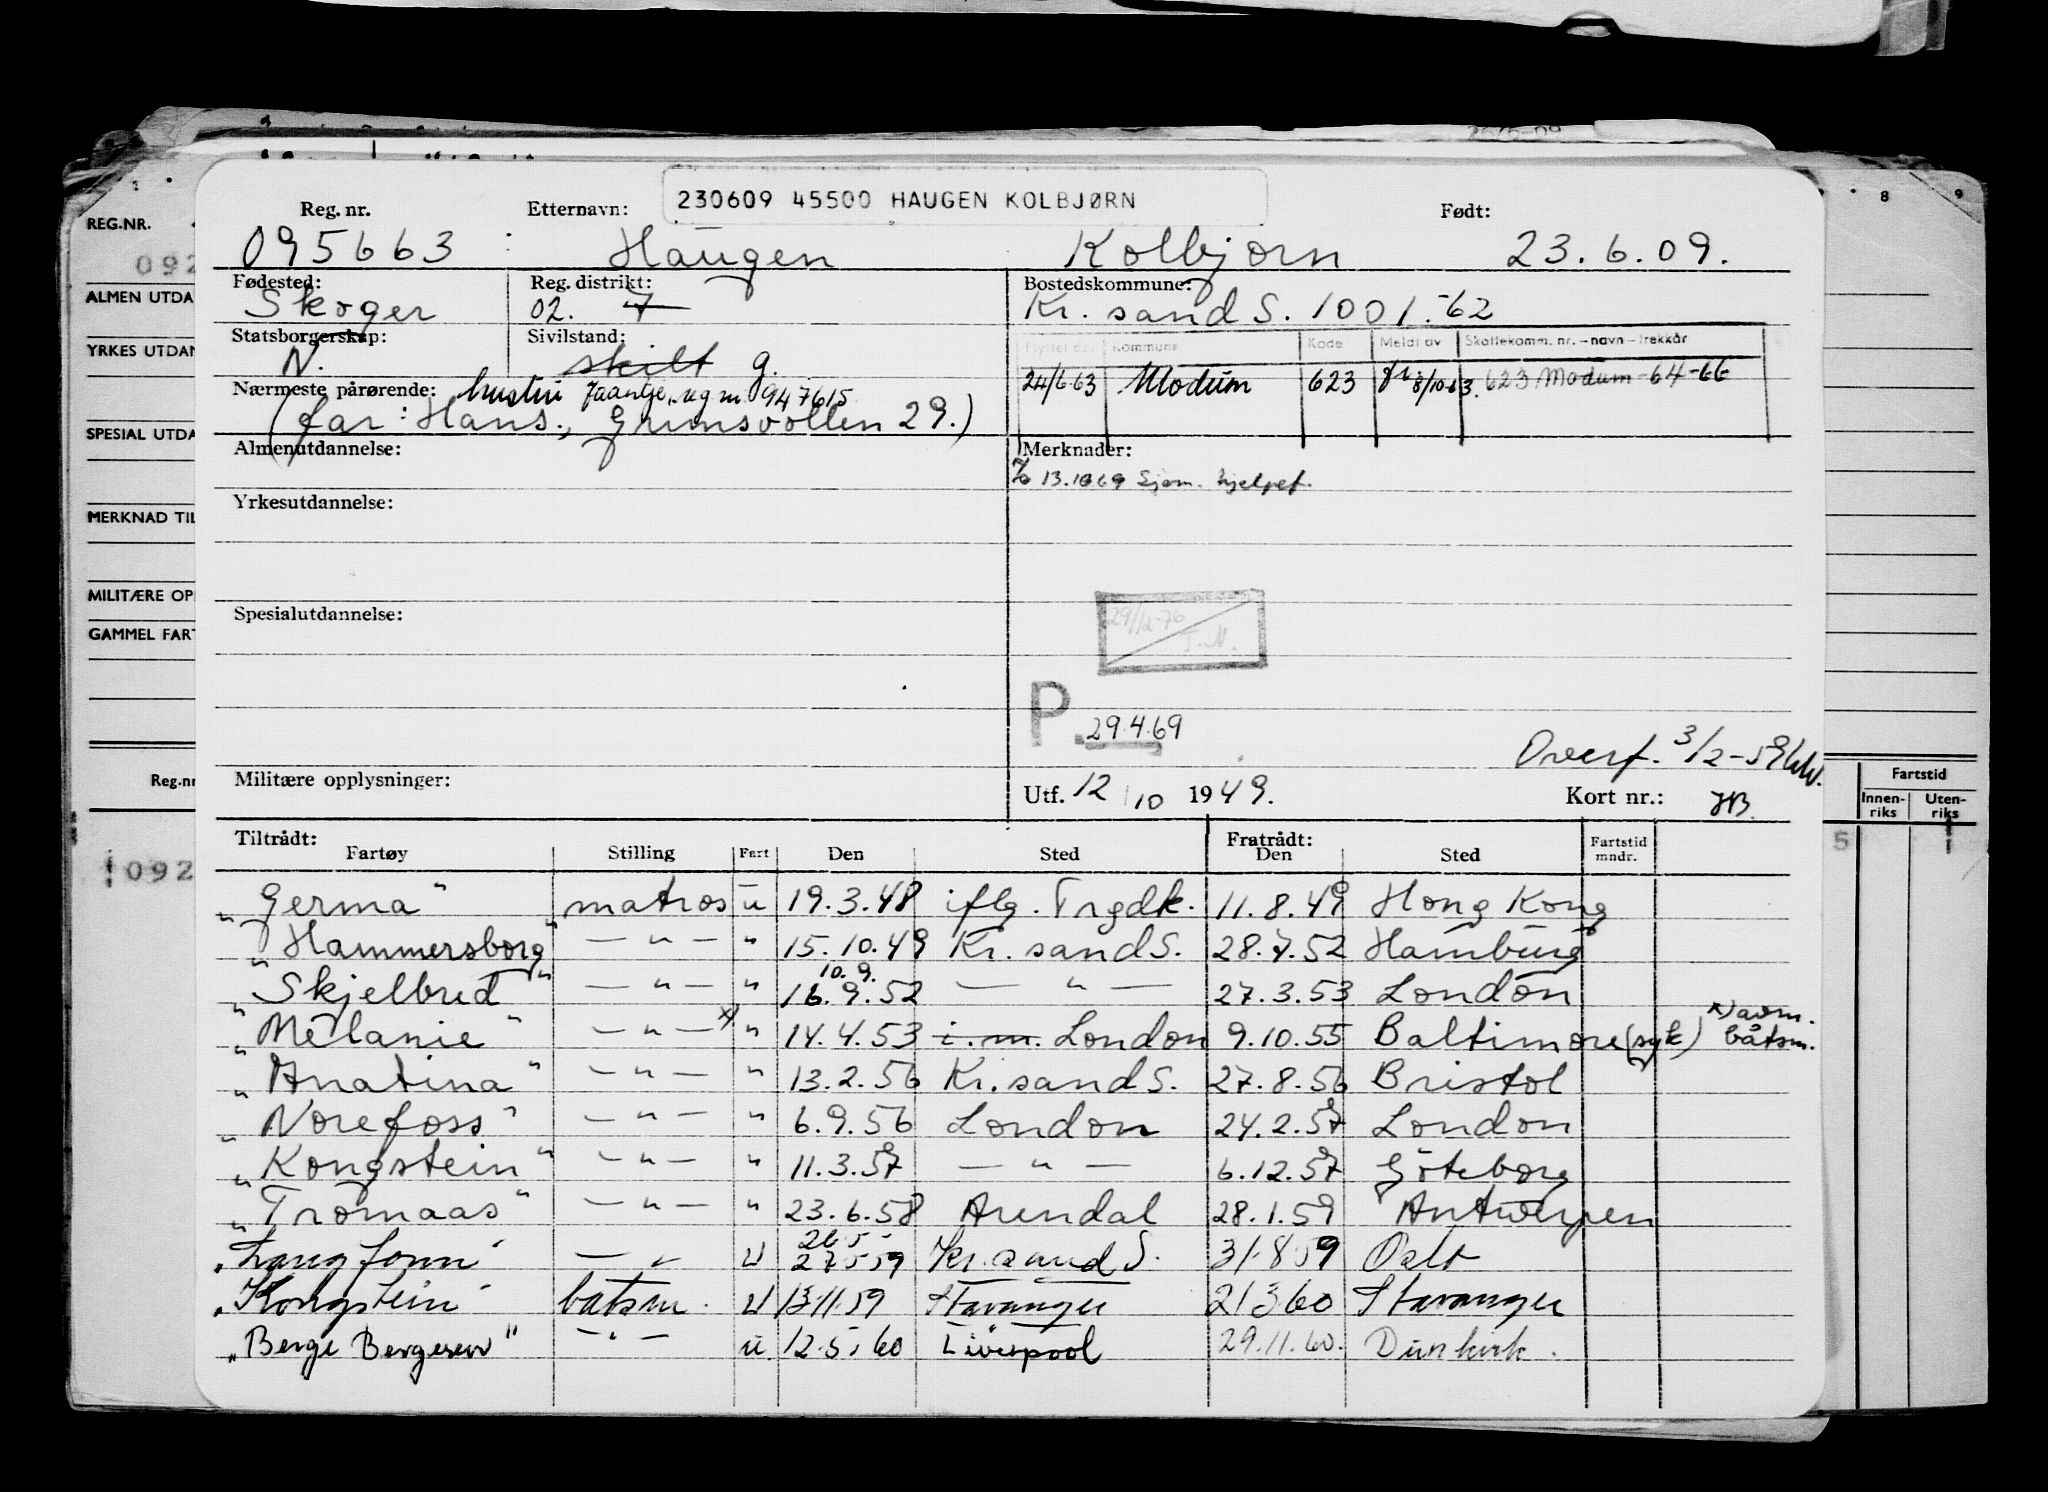 230609 45500 HAUGEN KOLBJØRN
Reg. nr. Etternavn: Født:
095663 Haugen Kolbjørn 23.6.09.
Fødested: Reg. distrikt: Bostedskommune:
Skoger 02. 7 Kr. sand S. 1001.-62
Statsborgerskap: Sivilstand:
N. skilt g.
Kommune Kode Meldt av Skattekomm. nr. - navn - trekkår
24/6-63 Modum 623 8/10-63. 623 Modum -64-66
Nærmeste pårørende: hustru Jaantje, reg nr. 947615
(far: Hans, Grimsvollen 29.)
Almenutdannelse: Merknader:
13.1069 Sjøm. hjelpef.
Yrkesutdannelse:
Spesialutdannelse:
29/12-76
T.N.
P. 29.4.69
Overf. 3/2-59
Militære opplysninger: Utf. 12/10 1949. Kort nr.: HB.
Tiltrådt: Fratrådt:
Fartøy Stilling Fart Den Sted Den Sted Fartstid mndr.
"Germa" matros u 19.3.48 iflg. Trgdk. 11.8.49 Hong Kong
"Hammersborg" — " — " 15.10.49 Kr. sand S. 28.7.52 Hamburg
10.9.
"Skjelbred" — " — " 16.9.52 — " — 27.3.53 London
"Melanie" — " — x) " 14.4.53 i. m. London 9.10.55 Baltimore (syk) x) avm. båtsm.
"Anatina" — " — " 13.2.56 Kr. sand S. 27.8.56 Bristol
"Norefoss" — " — " 6.9.56 London 24.2.57 London
"Kongstein" — " — " 11.3.57 — " — 6.12.57 Göteborg
"Tromaas" — " — " 23.6.58 Arendal 28.1.59 Antwerpen
26.5-
"Langfonn" — " U 27.5.59 Kr. sand S. 31.8.59 Oslo
"Kongstein" båtsm. U 13.11.59 Stavanger 21.3.60 Stavanger
"Berge Bergesen" — " — u. 12.5.60 Liverpool 29.11.60. Dunkirk.
REG.NR.
092
ALMEN UTDA
YRKES UTDAN
SPESIAL UTDA
MERKNAD TIL
MILITÆRE OP
GAMMEL FART
Reg.nr
092
8 9
Fartstid
Innen-riks Uten-riks
5